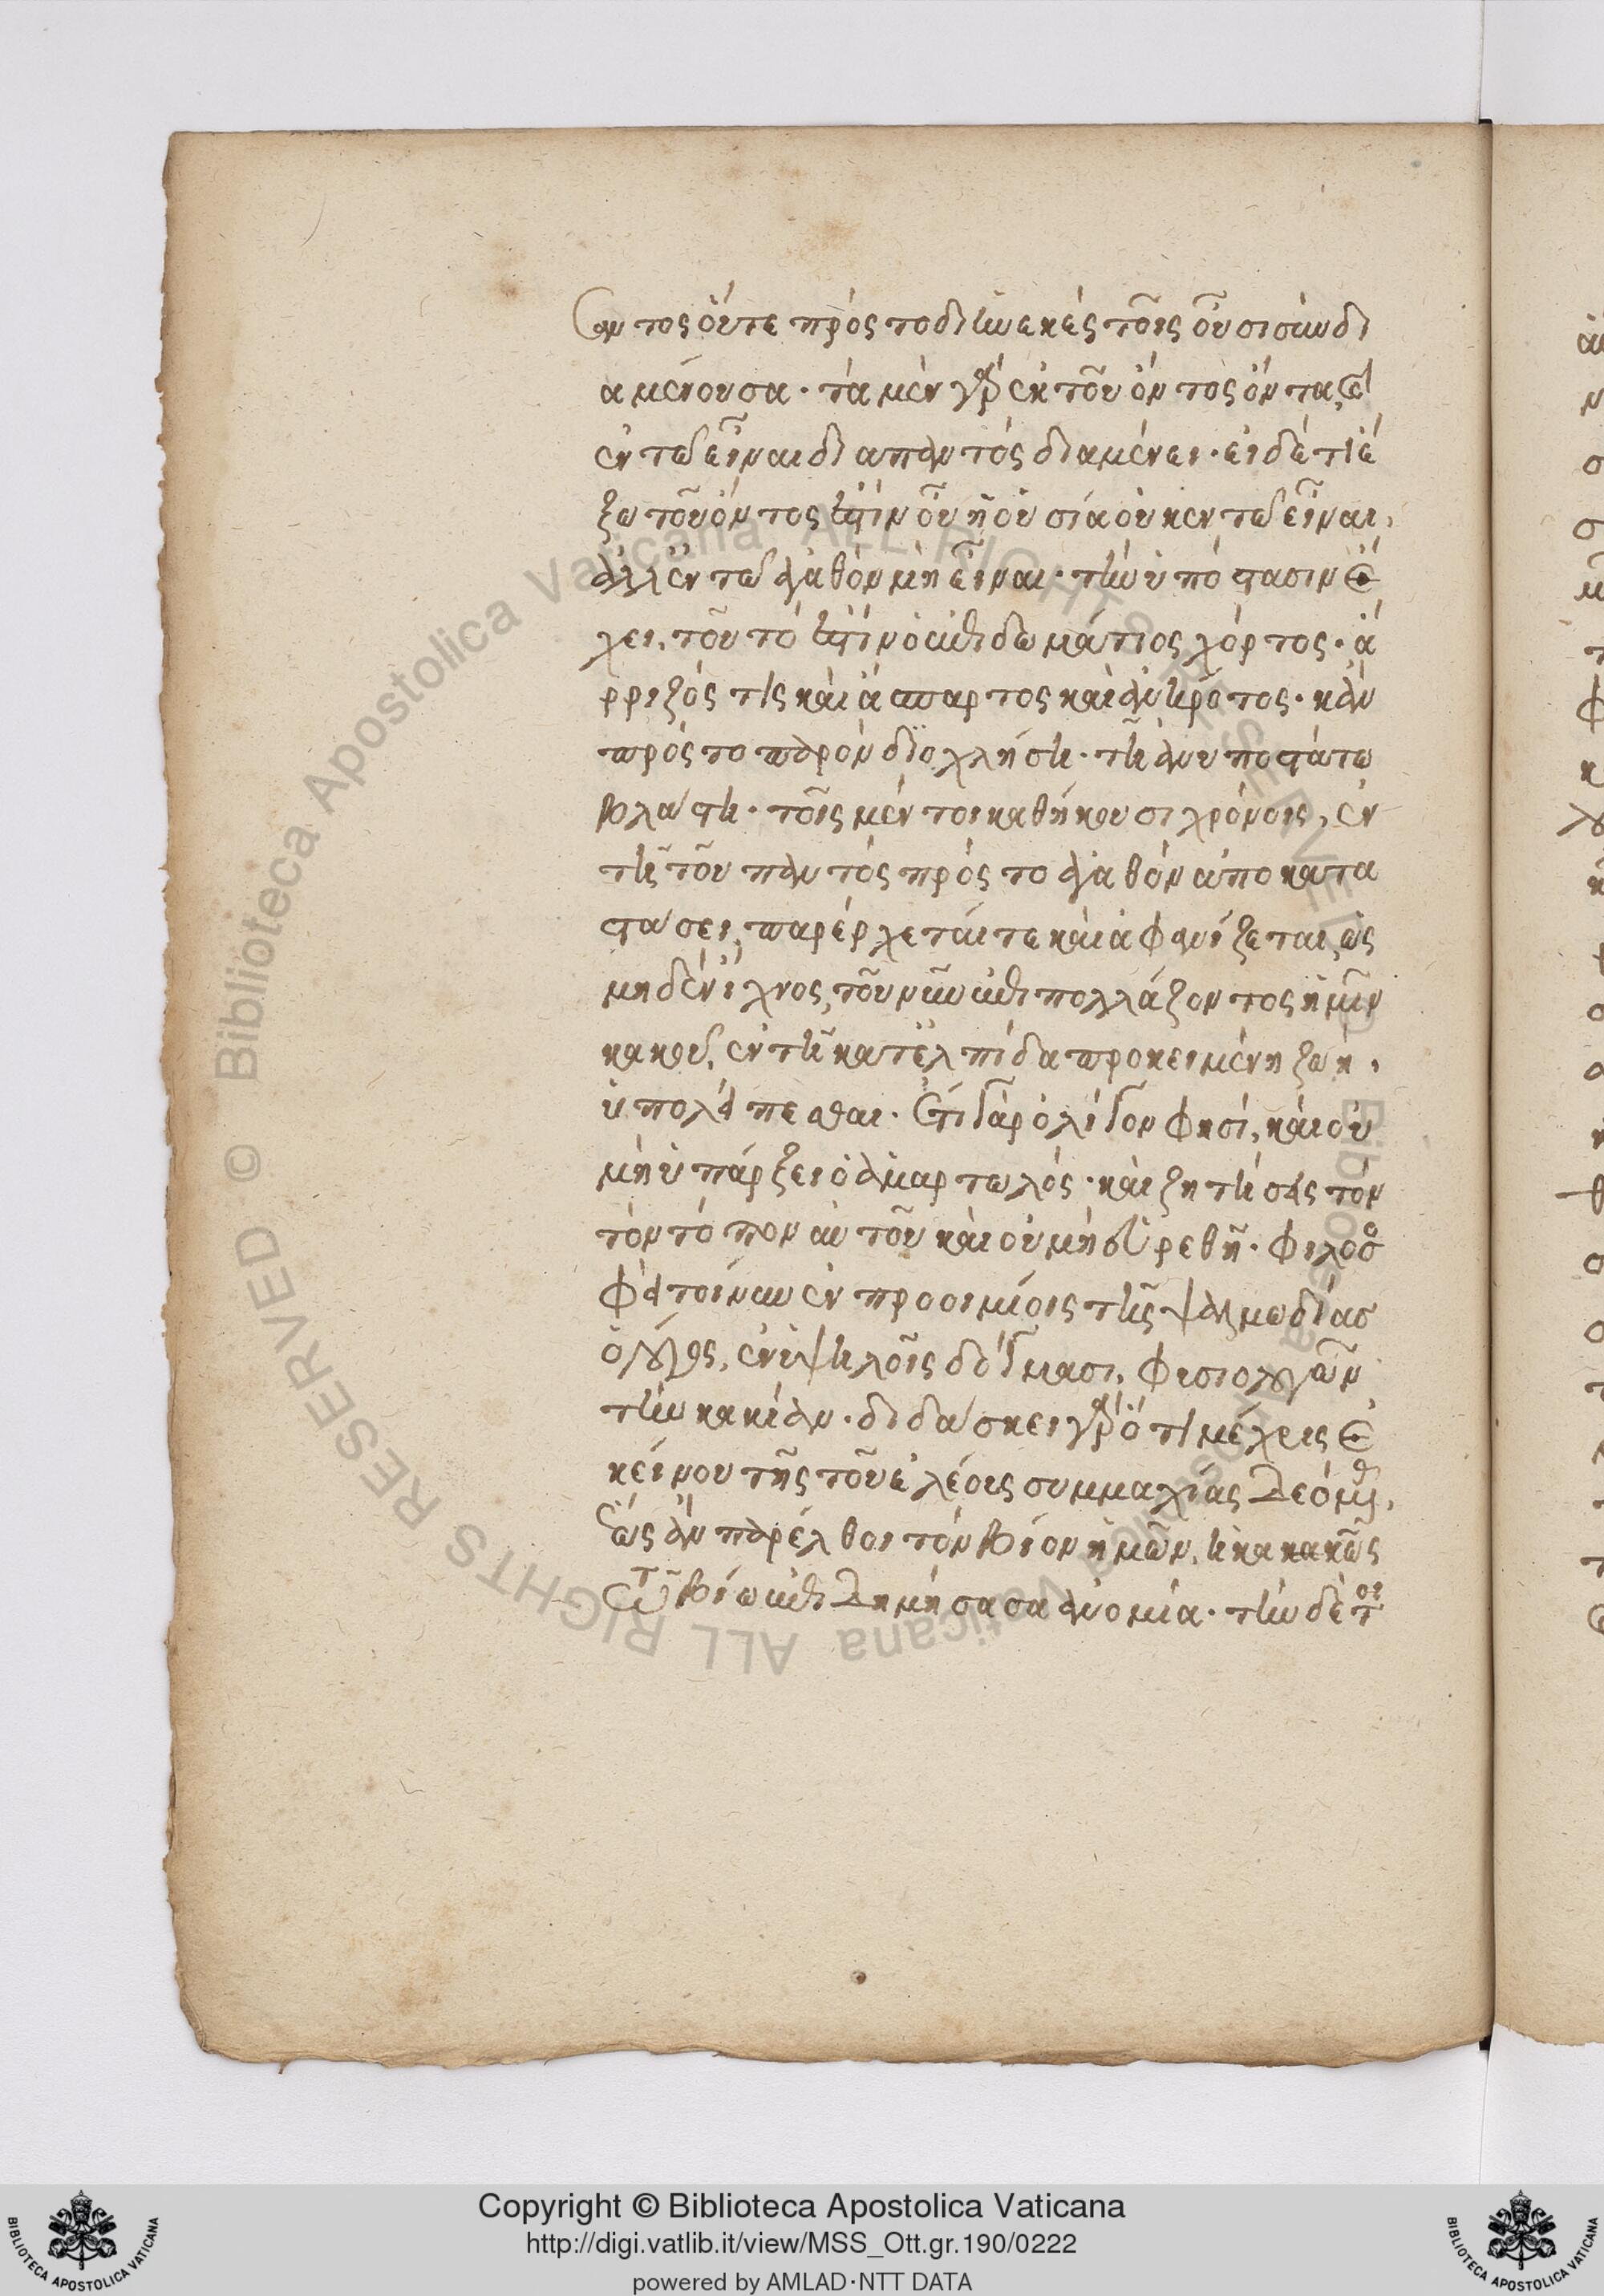 ὄντος οὔτε πρὸς τὸ διηνεκὲς τοῖς οὖσι συνδι
αμένουσα· τὰ μὲν γὰρ ἐκ τοῦ ὄντος ὄντα, καὶ
ἐν τῶ εἶναι διαπαντὸς διαμένει· εἰ δέ τι ἔ
ξω τοῦ ὄντος ἐστὶν οὗ ἡ οὐσία οὐκ ἐν τῶ εἶναι,
ἀλλ' ἐν τῶ ἀγαθὸν μὴ εἶναι· τὴν ὑπόστασιν ἔ
χει, τοῦτό ἐστιν ὁ ἐπιδωμάτιος χόρτος· ἄ
ρριζός τις καὶ ἄσπαρτος καὶ ἀνήροτος· κἂν
πρὸς τὸ παρὸν διοχλήση· τῆ ἀνυποστάτω
βλάστη· τοῖς μέντοι καθήκουσι χρόνοις, ἐν
τῆ τοῦ παντὸς πρὸς τὸ ἀγαθὸν ἀποκατα
στάσει, παρέρχεταί τε καὶ ἀφανίζεται, ὡς
μηδὲν ἴχνος, τοῦ νῦν ἐπιπολλάζοντος ἡμῖν
κακοῦ, ἐν τῆ κατ' ἐλπίδα προκειμένη ζωῆ,
ὑπολείπεσθαι· ἔτι γὰρ ὀλίγον φησί, καὶ οὐ
μὴ ὑπάρξει ὁ ἁμαρτωλός· καὶ ζητήσεις τὸν
τὸν τόπον αὐτοῦ καὶ οὐ μὴ εὑρεθῆ· φιλοσο
φεῖ τοίνυν ἐν προοιμίοις τῆς ψαλμωδίας
ὁ λόγος, ἐν ὑψηλοῖς δόγμασι, φυσιολογῶν
τὴν κακίαν· διδάσκει γὰρ ὅτι μέχρις ἐ
κείνου τῆς τοῦ ἐλέους συμμαχίας δεόμεθα,
ἕως ἂν παρέλθοι τὸν βίον ἡμῶν, ἡ κακακῶς
τῶ βίω ἐπιδημήσασα ἀνομία· τὴν δὲ τοι